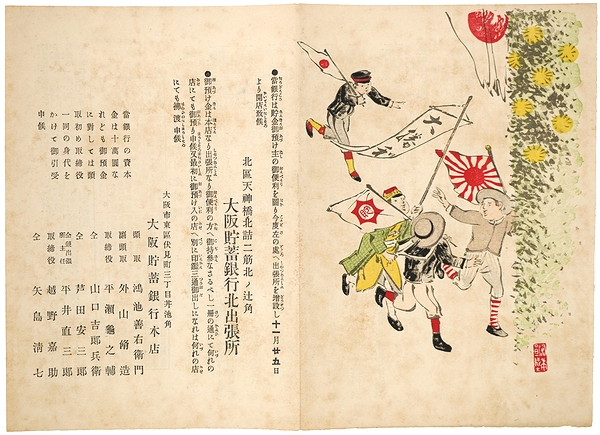 ●當銀行は貯金御預け主の御便利を圖り今度左の處へ出張所を增設し十一月廿五日
より開店致候
北區天神橋北詰二筋北ノ辻角
大阪貯蓄銀行北出張所
●御預け金は本店なり出張所なり御便利の方へ御持參なさるべし一冊の通にて何れの
店にても御預り申候又最初に御預け入の店へ別に印鑑三通御出しになれは何れの店
にても拂渡申候
大阪市東區伏見町三丁目丼池角
大阪貯蓄銀行本店
頭取 鴻池善右衛門
副頭取 外山脩造
取締役 平瀬龜之輔
仝 山口吉郎兵衛
仝 芦田安三郎
平井直三郎
取締役 越野嘉助
仝 矢島清七
當銀行の資本
金は十萬圓な
れども御預金
に對しては頭
取初め取締役
一同の身代を
かけて御引受
申候
大